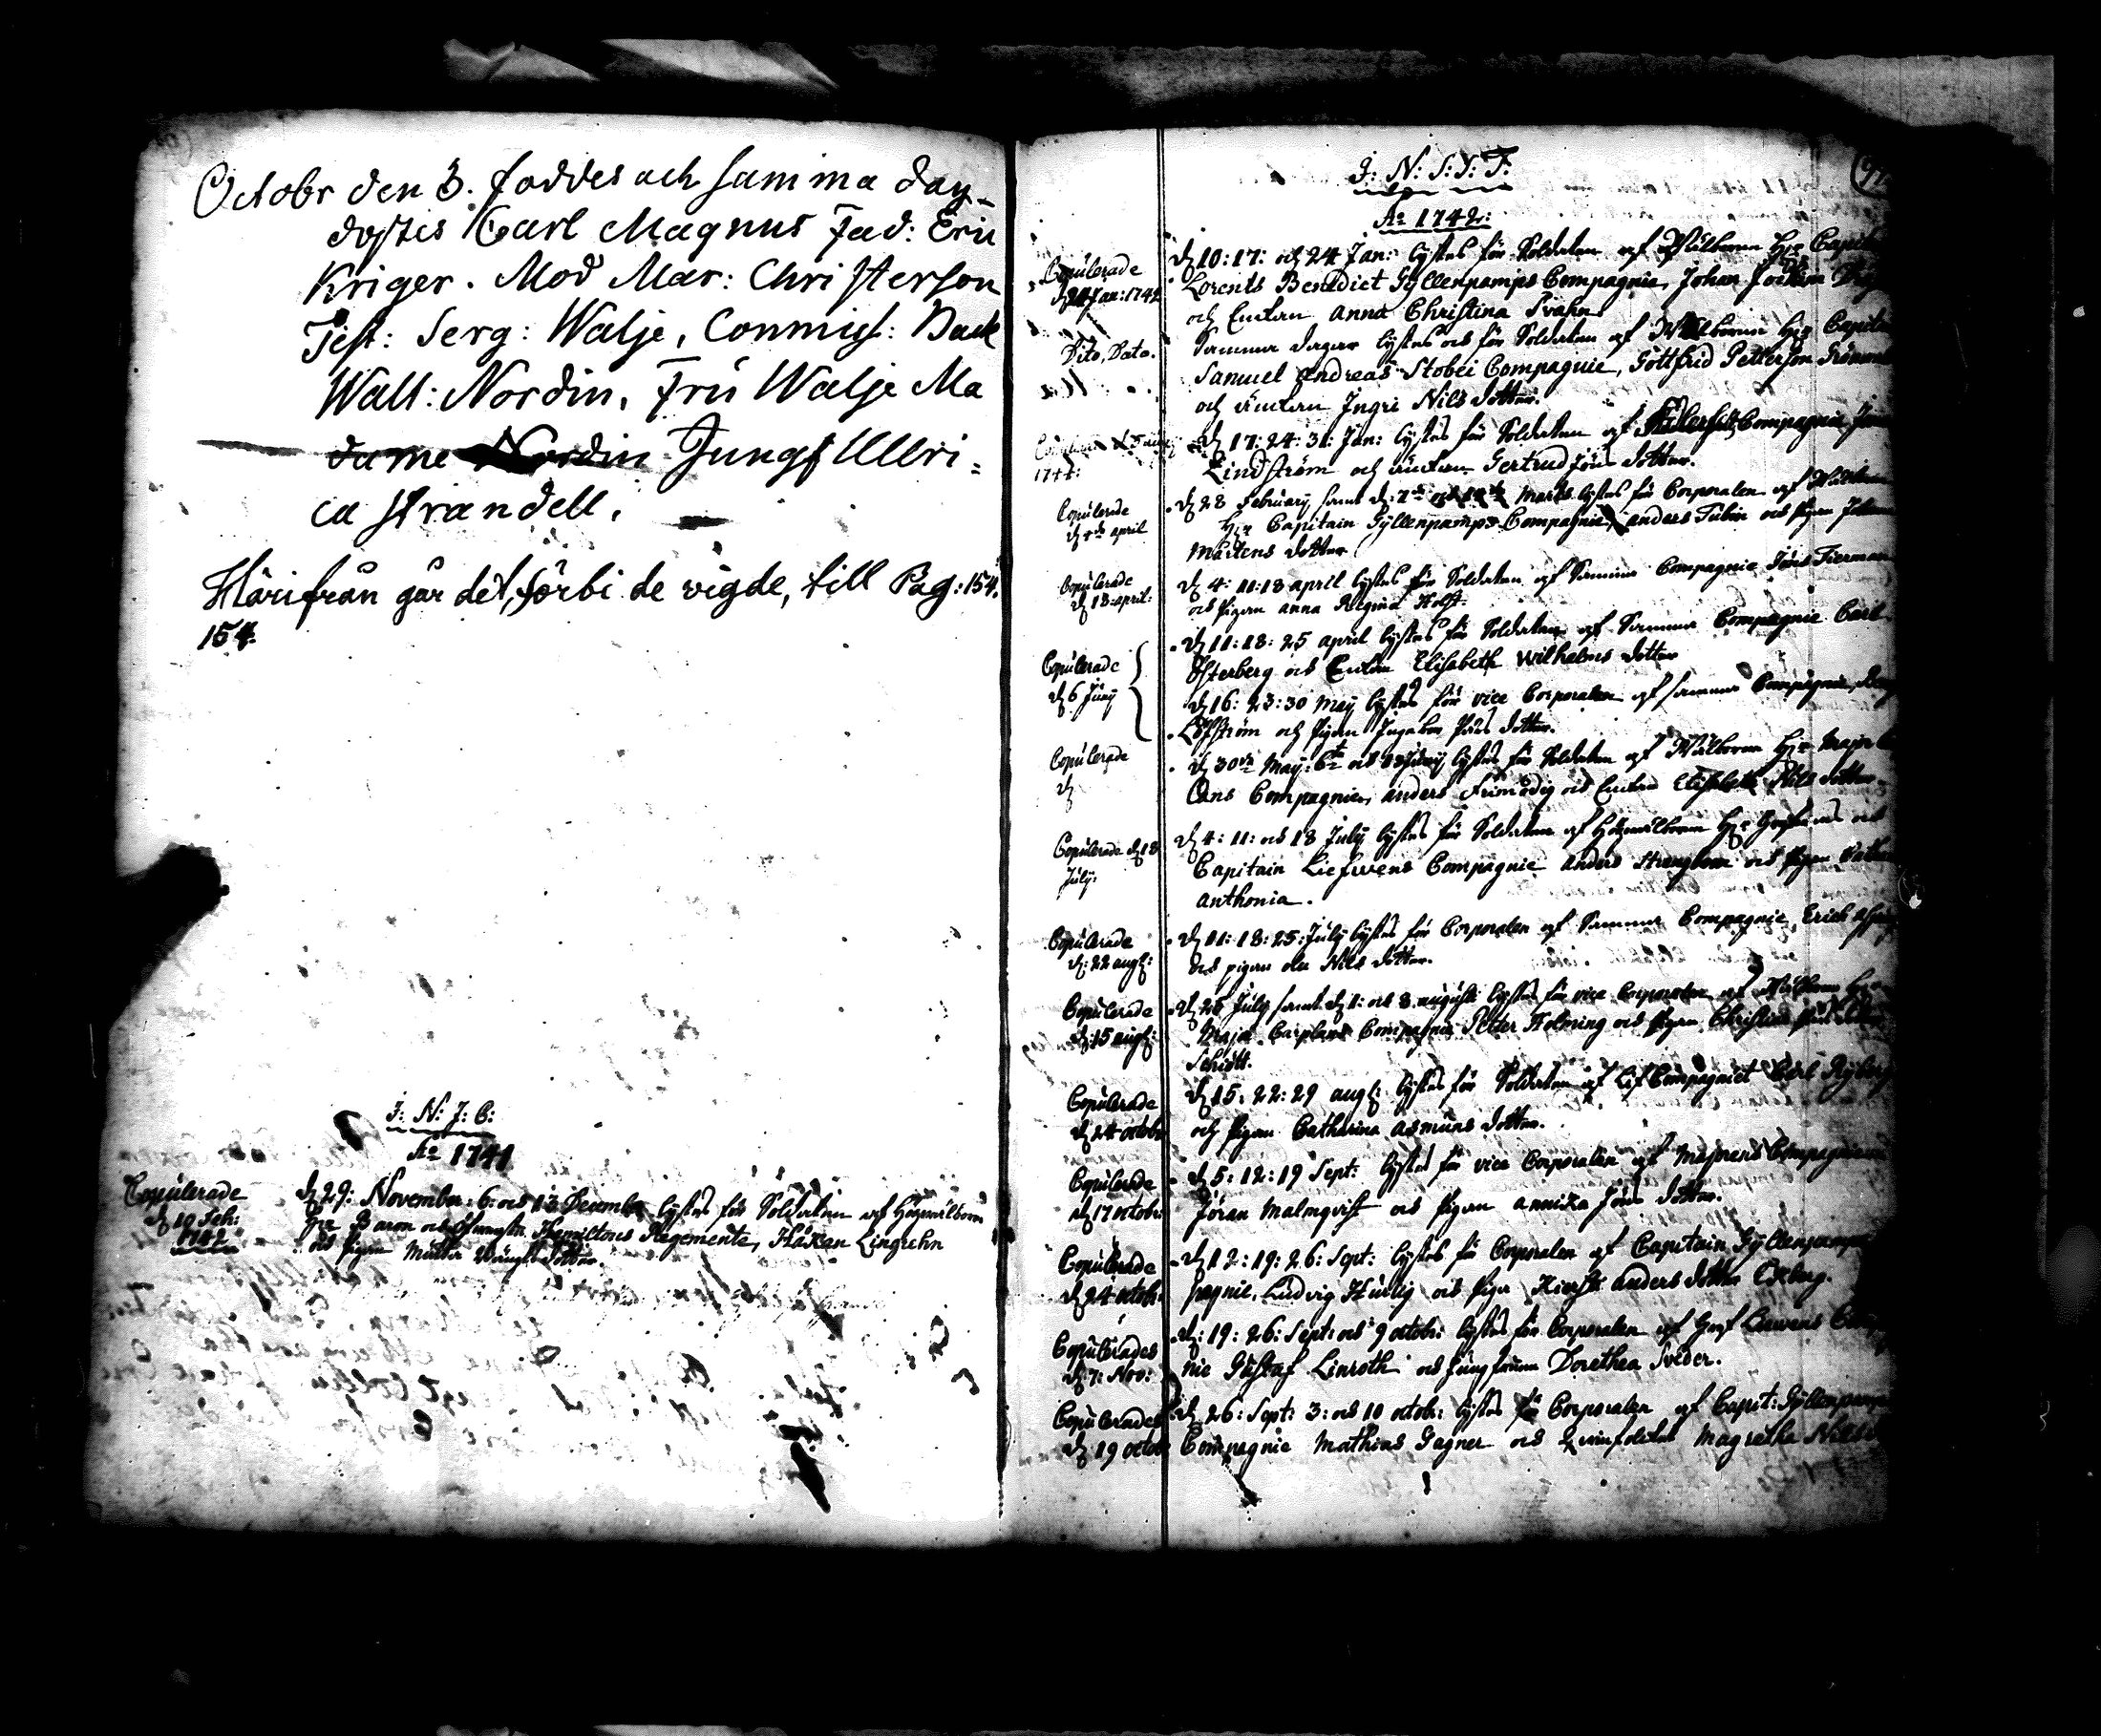 Octobr den 3. foddes och samma dag
döptes Carl Magnus Fad: Eric
Kriger. Mod Mar: Christerson
Test: Serg: Walje, Commiss: Back
Wall: Nordin, Fru Walje Ma
dame Nordin Jungf Ullri=
ca Strandell.
Härifrån går det, förbi de vigde, till Pag: 154.
154.
J: N: J: C:
Ao 1741
Copulerade
d 10 Feb:
1742
d 29: November: 6: och 13 December lystes för Soldaten af Högwälborne
Hr Baron och Hamiltons Regemente, Håkan Lingrehn
och Pigan dotter.
J: N: S: S: T:
Ao 1742:
Copulerade
d 24 Jan: 1742
d 10: 17: och 24 Jan: lystes för Soldaten af Wälborne Hr Capit
Lorents Benedict Gyllenpamps Compagnie, Johan Jochim
och Enkan Anna Christina Svahn
Dito, Dato.
Samma dagar lystes och för Soldaten af Wälborne Hr Capit
Samuel Andreas Stobéi Compagnie, Gottfrid Petterson
och änkan Ingri Nils dotter.
1744:
d 17: 24: 31: Jan: lystes för Soldaten af Compagnie
Lindström och änkan Gertrud Jöns dotter.
Copulerade
d 4de april
d 28 February samt d: 7de och Martz lystes för Corporalen af Wälborne
Hr Capitain Gyllenpamps Compagnie, anders Tubin och Pigan
Mårtens dotter
Copulerade
d 18: april:
d 4: 11: 18 april lystes för Soldaten af Samma Compagnie Jöns Fierman
och Pigan anna Regina Holst.
Copulerade
d 6 Juny
d 11: 18: 25 april lystes för Soldaten af Samma Compagnie Carl
Österberg och Enkan Elisabeth Wilhelms dotter
d 16: 23: 30 May lystes för vice Corporalen af samma Compagnie,
Löfström och Pigan Ingebor Pärs dotter.
Copulerade
d
d 30de May: 6te och 13 Juny lystes för Soldaten af Wälborne Hr Major
Compagnie, anders Frimodig och Enkan Elisabeth Nils dotter
Copulerade d 18
July:
d 4: 11: och 18 July lystes för Soldaten af Högwälborne Hr och
Capitain Liefwens Compagnie anders och Pigan
Anthonia.
Copulerade
d: 22 aug:
d 11: 18: 25: July lystes för Corporalen af Samma Compagnie, Erich
och pigan Nils dotter.
Copulerade
d: 15 aug:
d 25 July samt d 1: och 8 augusti lystes för vice Corporalen af Wälborne Hr
Major Carplans Compagnie Petter Holming och Pigan Christina
Schiött.
Copulerade
d 24 octobr
d 15: 22: 29 aug: lystes för Soldaten af Lif Compagniet Carl Ryberg
och Pigan Catharina Asmuns dotter.
Copulerade
d 17 octobr:
d 5: 12: 19 Sept: lystes för vice Corporalen af Majorens Compagnie
Jöran Malmqvist och Pigan annika Jöns dotter.
Copulerade
d 24 octobr:
d 12: 19: 26: Sept: lystes för Corporalen af Capitain Gyllenpamps
pagnie, Ludvig och Pigan anders dotter Ekberg.
Copulerades
d 7: Nov:
d: 19: 26: Sept: och 9 octobr: lystes för Corporalen af Gref Lewens
nie Gustaf Linroth och Jungfrun Dorethea Svider.
Copulerades
d 19 octobr
d 26: Sept: 3: och 10 octobr: lystes för Corporalen af Capit: Gyllenpamps
Compagnie Mathias Gagner och Magretha Nils